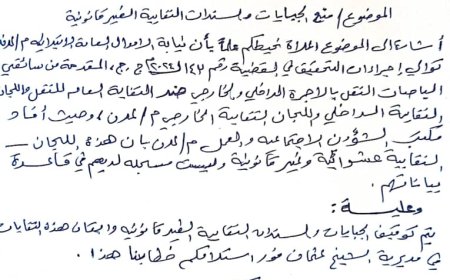 الموضوع / منع الجبايات والسندات النقابية الغير قانونية
أشارة الى الموضوع أعلاه نحيطكم علماً بأن نيابة الاموال العامة الابتدائية م/عدن
توالي إجراءات التحقيق في القضية رقم ١٤٢ لسنة ٢٠٢٤م ج.ج، المقدمة من سائقي
الباصات النقل بالاجرة الداخلي والخارجي ضد النقابة العامه للنقل واللجان
النقابية الداخلي واللجان النقابية الخارجي م/عدن، وحيث أفاد
مكتب الشؤون الاجتماعيه والعمل م/عدن بان هذه اللجان
النقابية عشوائية وغير قانونية وليست مسجله لديهم في قاعدة
بياناتهم.
وعليه:
يتم توقيف الجبايات والسندات النقابية الغير قانونيه واللجان هذه النقابات
في مديرية الشيخ عثمان فور استلامكم خطابنا هذا.